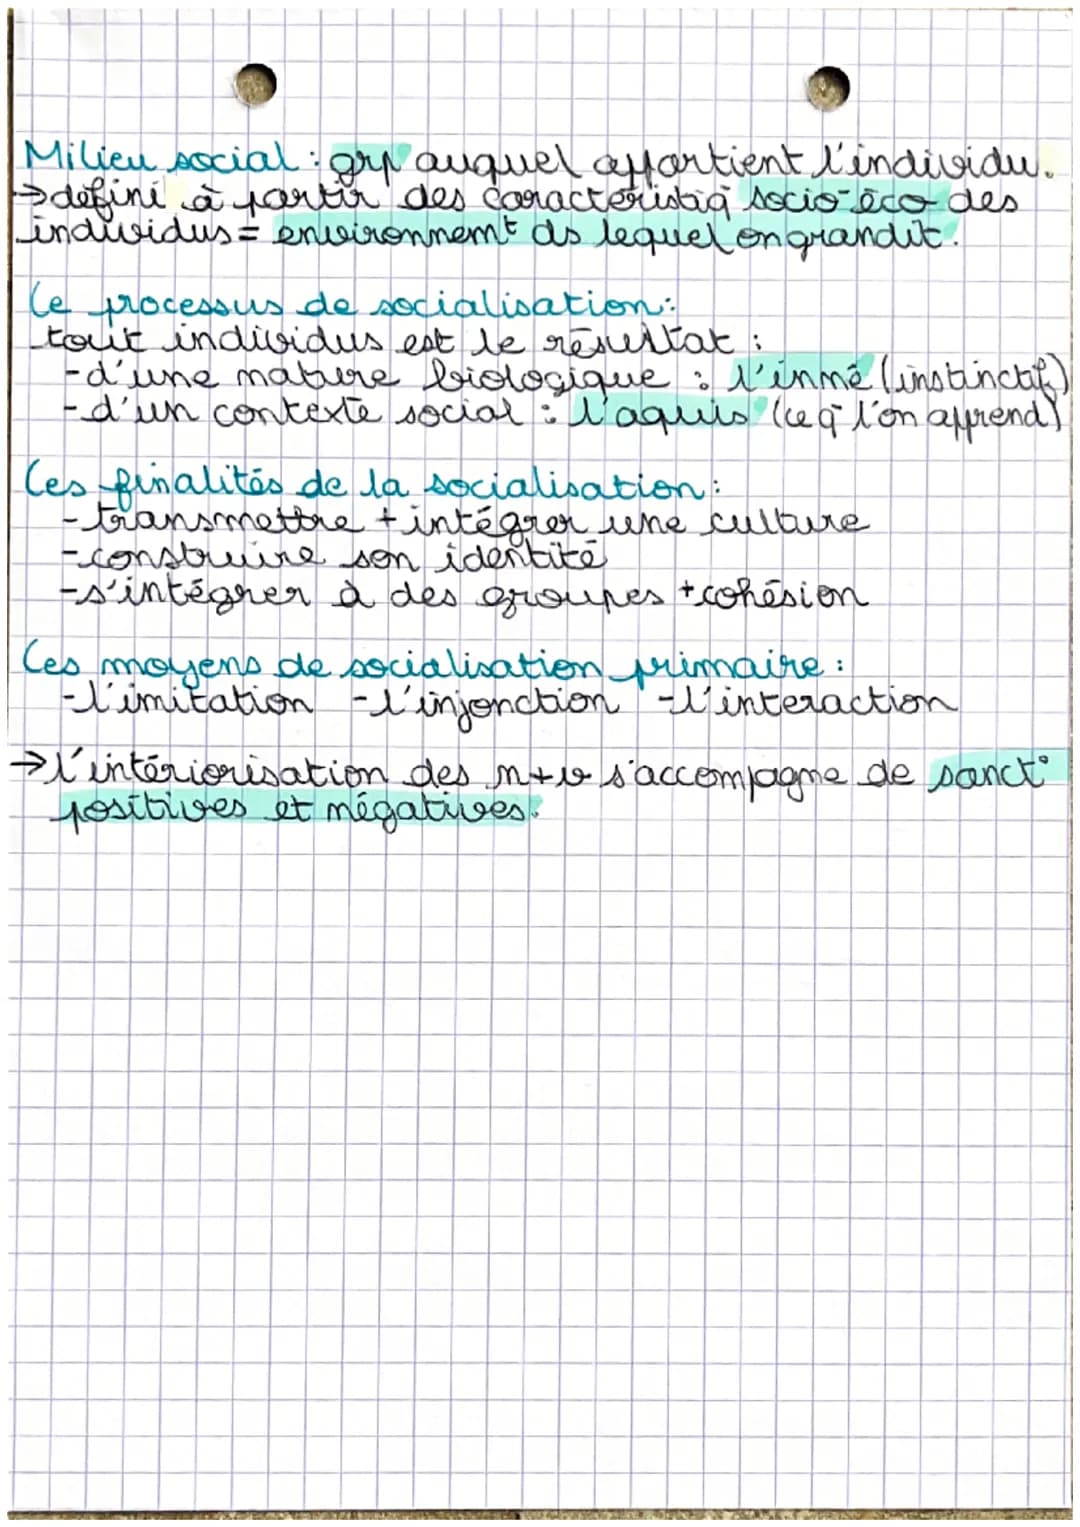 Milieu social : grp auquel appartient l'individu.
→ défini à partir des caractéristiq̄ socio-éco des
individus = environnemt ds lequel on grandit.
Le processus de socialisation :
tout individus est le résultat :
- d'une nature biologique : l'inné (instinctif)
- d'un contexte social : l'aquis (ce q̄ l'on apprend)
Les finalités de la socialisation :
- transmettre + intégrer une culture
- construire son identité
- s'intégrer à des groupes + cohésion
Les moyens de socialisation primaire :
- l'imitation - l'injonction - l'interaction
→ l'intériorisation des n+v s'accompagne de sanct°
positives et négatives.